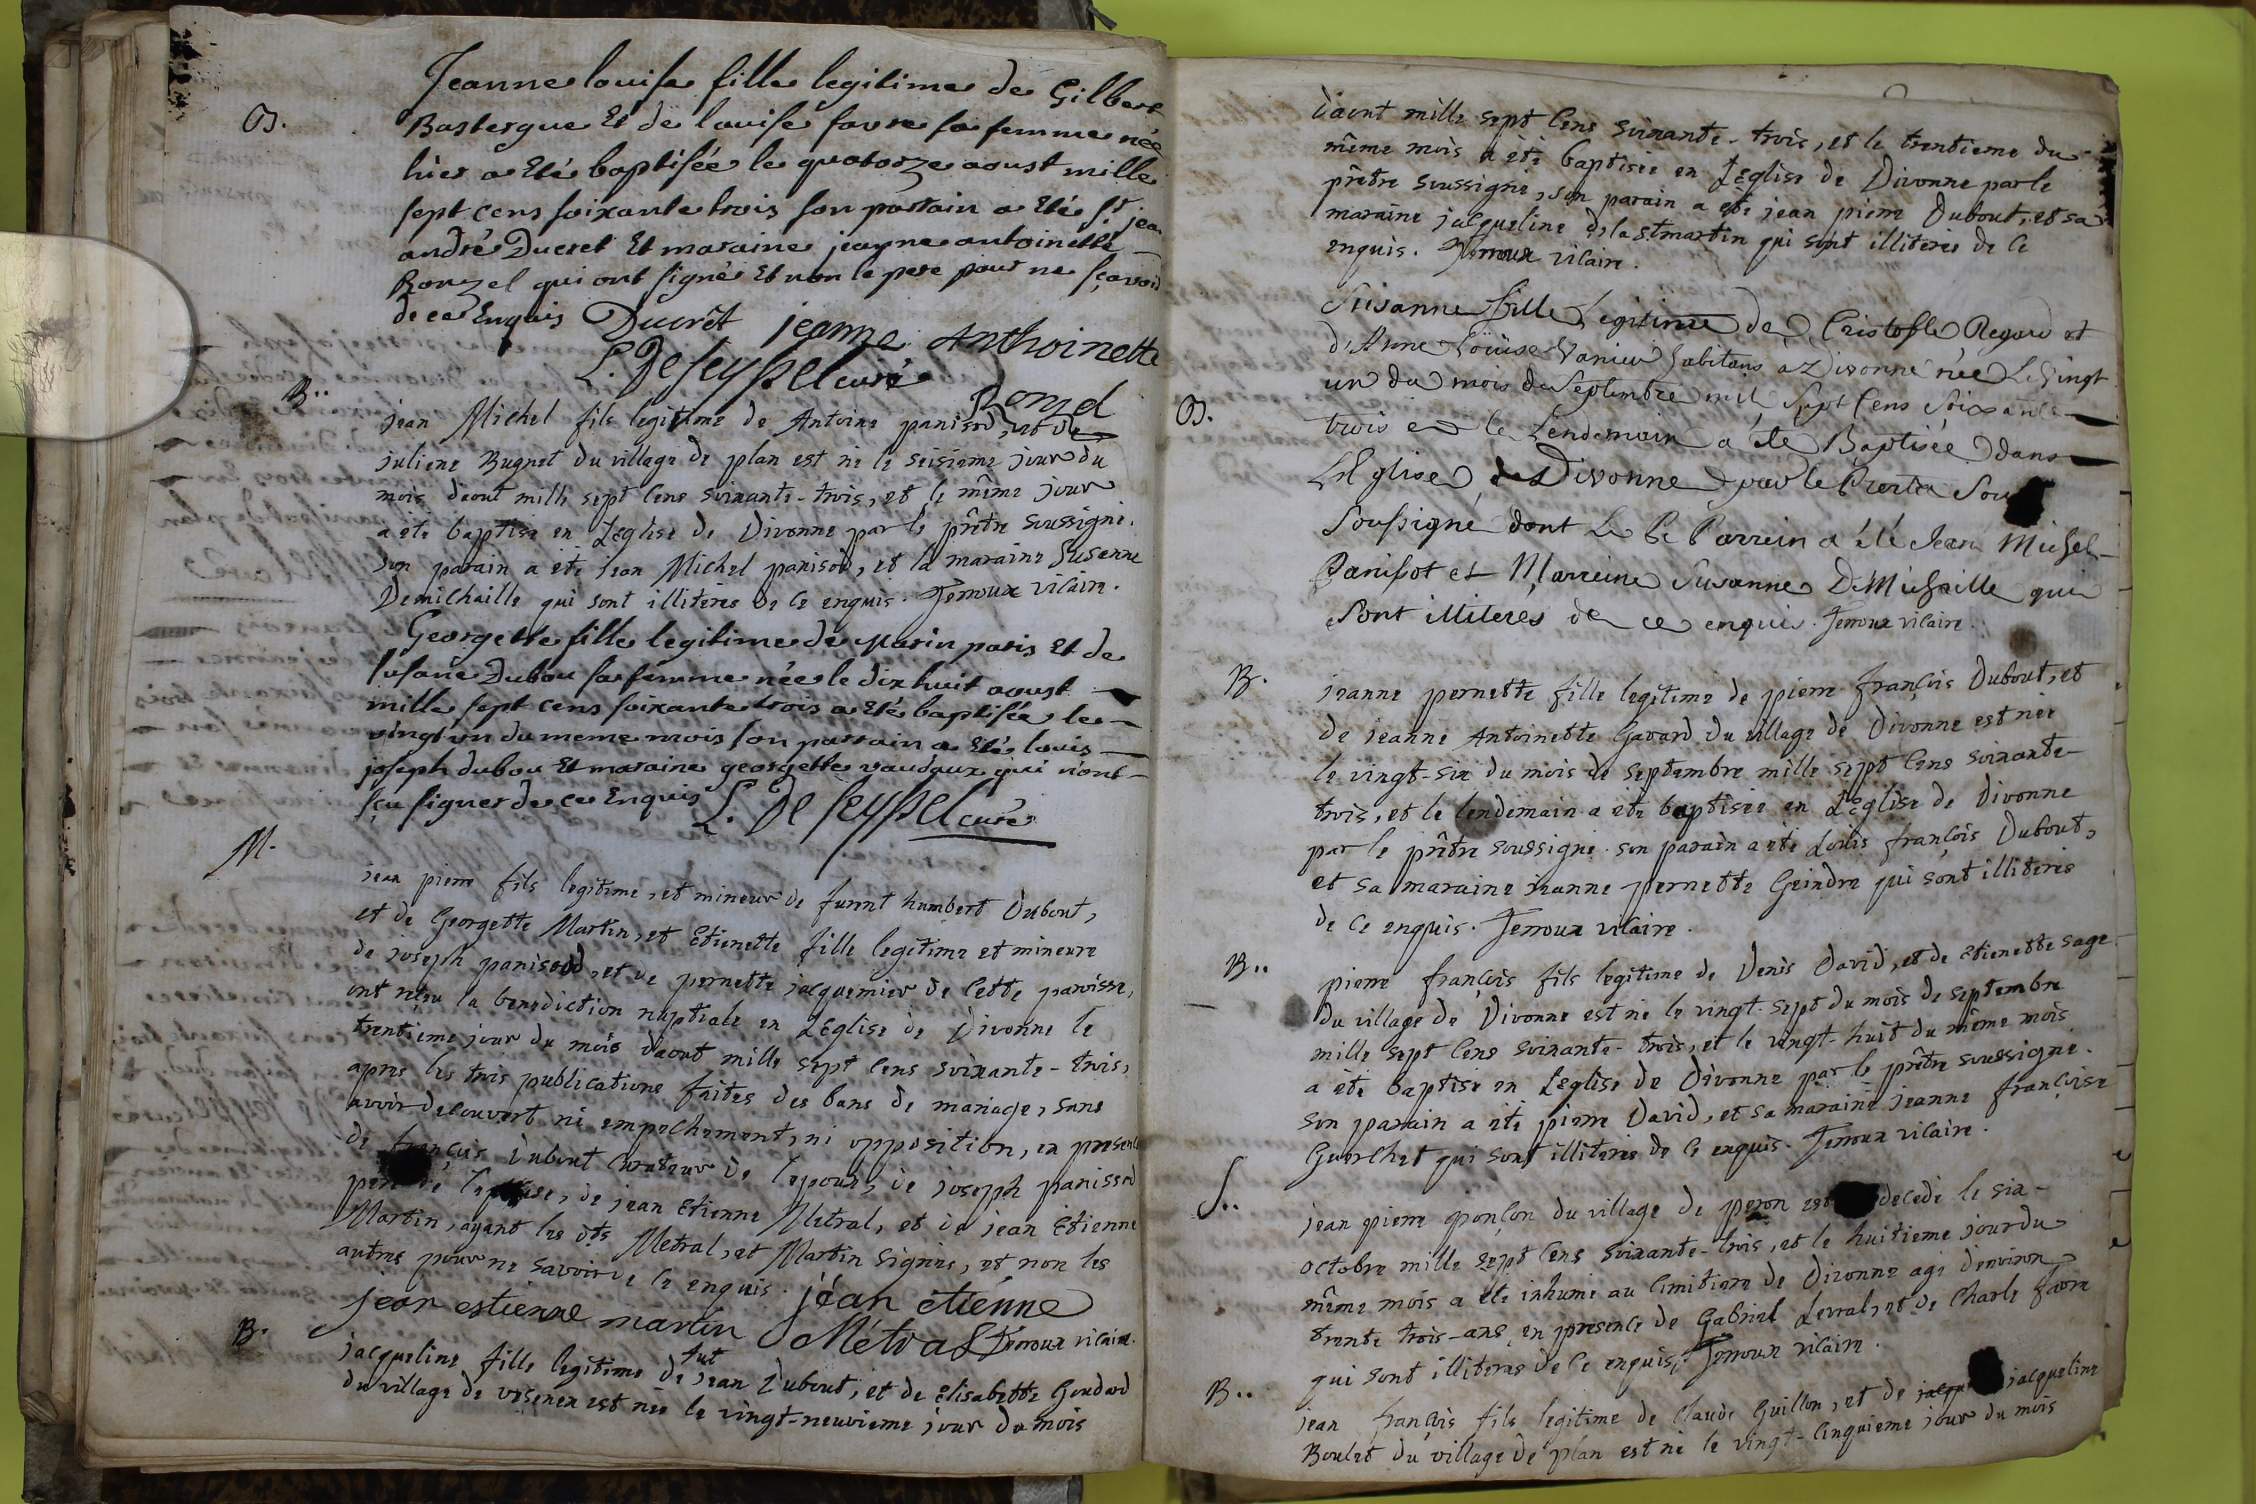 Jeanne louise fille legitime de Gilbert
B.
Bastergue Et de louise favre sa femme née
hier a Eté baptisée le quatorze aoust mille
sept cens soixante trois son parrain a Eté Sr. jean
andré Ducret Et maraine jeanne antoinette
Ronzel qui ont signé Et non le pere pour ne sçavoir
de ce Enquis Ducrêt jeanne Anthoinette
L. De seyssel curé Ronzel
B..
jean Michel fils legitime de Antoine panisod, et de
juliene Bugnet du village de plan est né le seisieme jour du
mois d'aout mille sept cens soixante-trois, et le même jour
a été baptisé en L'Eglise de Divonne par le prêtre soussigné.
son parain a été jean Michel panisod, et la maraine Susanne
Demichaille qui sont illiterés de ce enquis. Jenoux vicaire.
Georgette fille legitime de Marin paris Et de
susane Dubou sa femme née le dix huit aoust
mille sept cens soixante trois a Eté baptisée le
vingt un du meme mois son parrain a Eté louis
joseph dubou Et maraine georgette vaudaux qui n'ont
sçu signer de ce Enquis L. De seyssel curé
M.
jean pierre fils legitime, et mineur de funnt humbert Dubout,
et de Georgette Martin, et Etienette fille legitime et mineure
de joseph panisod, et de pernette jacquemier de cette paroisse,
ont reçu la benediction nuptiale en L'Eglise de Divonne le
trentieme jour du mois d'aout mille sept cens soixante-trois,
apres les trois publications faites des bans de mariage, sans
avoir decouvert ni empechement, ni opposition, en presence
de françois Dubout Curateur de l'epoux, de joseph panissod
pere de l'epouse, de jean Etienne Metral, et de jean Etienne
Martin, ayant les dts Metral, et Martin signés, et non les
autres pour ne savoir de ce enquis.
jean estienne martin jéan étiénne
Métral Jenoux vicaire.
B.
jacqueline fille legitime de fut jean Dubout, et de elisabette Goudard
du village de vesenex est née le vingt-neuvieme jour du mois
d'aout mille sept cens soixante-trois, et le trentieme du
même mois a été baptisée en L'Eglise de Divonne par le
prêtre soussigné, son parain a été jean pierre Dubout, et sa
maraine jacqueline de la st martin qui sont illiterés de ce
enquis. Jenoux vicaire.
Susanne fille Legitime de Cristofle Regard et
d'Anne Loüise Vanier habitans a Divonne née Le Vingt
un du mois de Septembre mil Sept Cens Soixante
B.
trois et le Lendemain a été Baptisée dans
L'Eglise de Divonne par le Pretre Sous
Soussigné dont Le Pe Parrein a été Jean Michel
Panissot et Marreine Susanne DeMichaille qui
Sont illiteres de ce enquis. Jenoux vicaire.
B.
jeanne pernette fille legitime de pierre françois Dubout, et
de jeanne Antoinette Gavard du village de Divonne est née
le vingt-six du mois de septembre mille sept cens soixante-
trois, et le lendemain a été baptisée en L'Eglise de Divonne
par le prêtre soussigné. son parain a été Louis françois Dubout,
et sa maraine jeanne pernette Geindre qui sont illiterés
de ce enquis. Jenoux vicaire.
B..
pierre françois fils legitime de Denis David, et de etienette sage
du village de Divonne est né le vingt-sept du mois de septembre
mille sept cens soixante-trois, et le vingt-huit du même mois
a été baptisé en L'eglise de Divonne par le prêtre soussigné.
son parain a été pierre David, et sa maraine jeanne françoise
Guerchet qui sont illiterés de ce enquis. Jenoux vicaire.
S..
jean pierre ponçon du village de peron est decedé le six
octobre mille sept cens soixante-trois, et le huitieme jour du
même mois a été inhumé au cimitiere de Divonne agé d'environ
trente trois-ans en presence de Gabriel Levrat, et de Charle favre
qui sont illiterés de ce enquis. Jenoux vicaire.
B..
jean françois fils legitime de Claude Guillon, et de jacqueline
Boulet du village de plan est né le vingt-cinquieme jour du mois